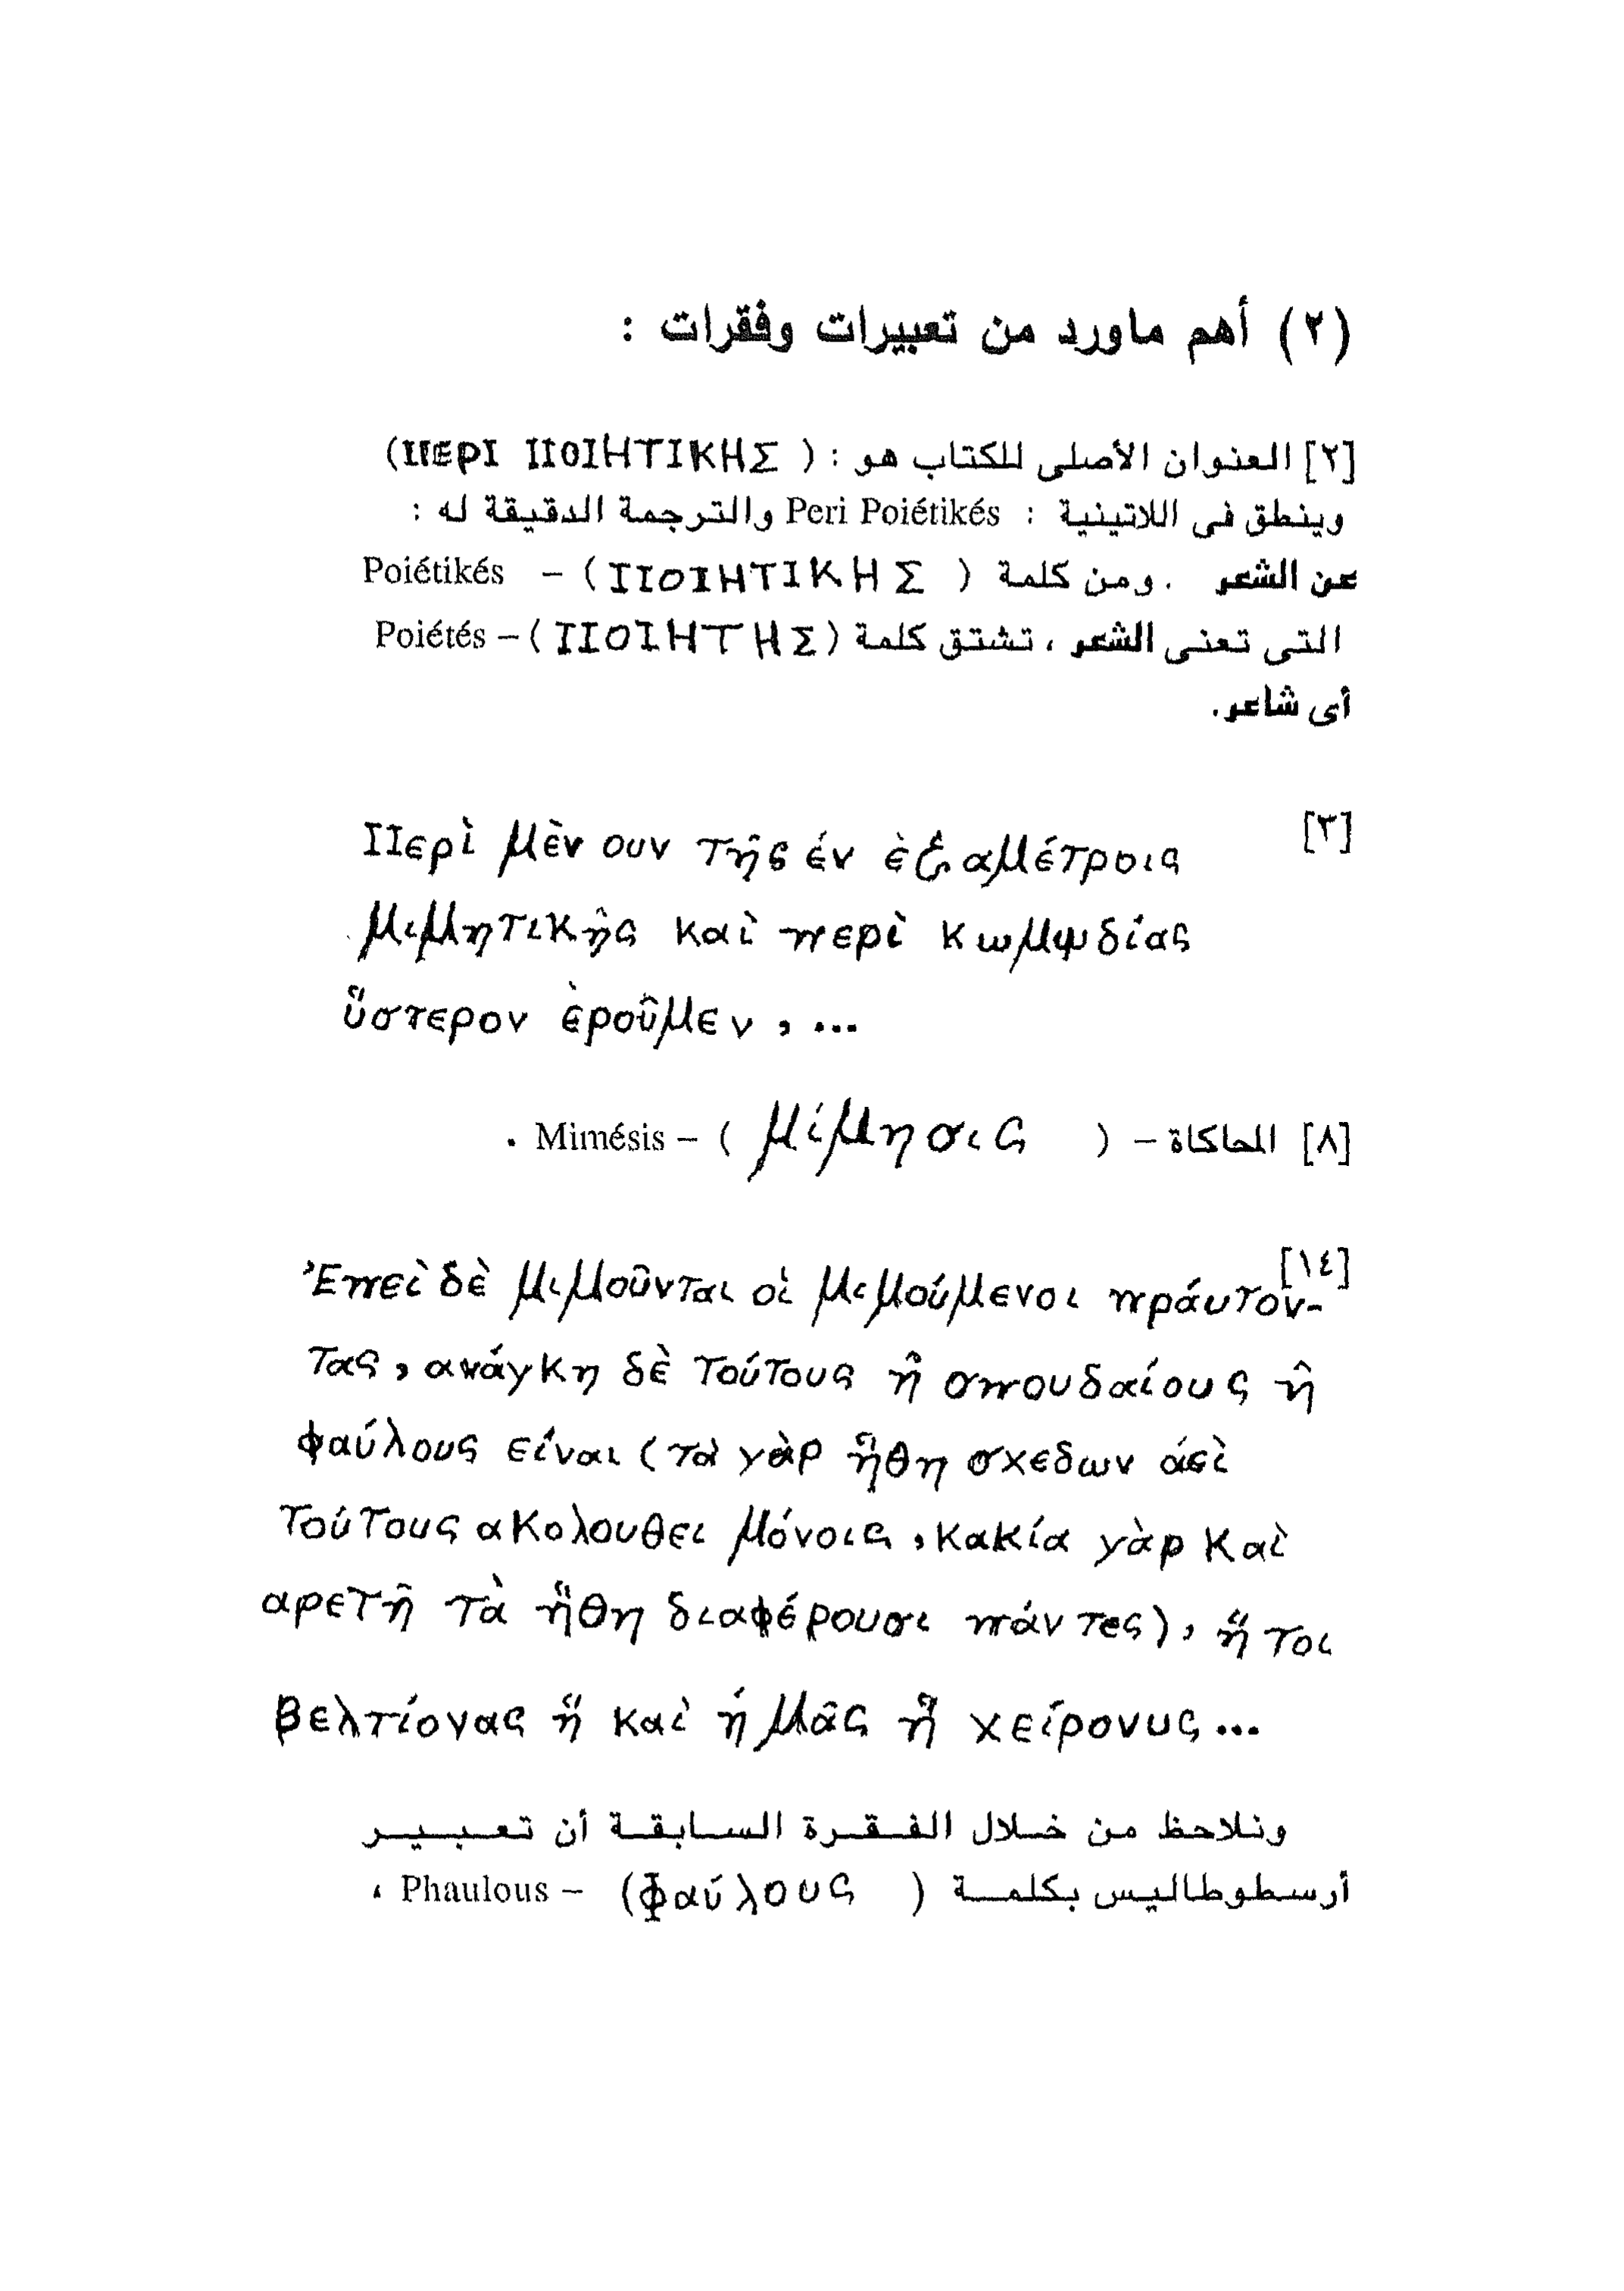 (٢) أهم ماورد من تعبيرات وفقرات :
[٢] العنوان الأصلى للكتاب هو : (ΠΕΡΙ ΠΟΙΗΤΙΚΗΣ)
وينطق فى اللاتينية : Peri Poiétikés والترجمة الدقيقة له :
عن الشعر . ومن كلمة (ΠΟΙΗΤΙΚΗΣ) – Poiétikés
التى تعنى الشعر ، تشتق كلمة (ΠΟΙΗΤΗΣ) – Poiétés
أى شاعر.
[٣] Περὶ μὲν ουν τῆς έν ὲξαμέτροις
μιμητικῆς καὶ περὶ κωμψδίας
ὕστερον ὲροῦμεν , ...
[٨] المحاكاة – (μίμησις) – Mimésis .
[١٤] Ἐπεὶ δὲ μιμοῦνται οἱ μιμούμενοι πράυτον-
τας , ανάγκη δὲ τούτους ἢ σπουδαίους ἢ
φαύλους είναι (τὰ γὰρ ἤθη σχεδων άεὶ
τούτους ακολουθει μόνοις , κακία γὰρ καὶ
αρετῆ τὰ ἤθη διαφέρουσι πάντες) , ἤ τοι
βελτίονας ἤ καὶ ἡμᾶς ἤ χείρονυς ...
ونلاحظ من خلال الفقرة السابقة أن تعبير
أرسطوطاليس بكلمة (Φαύλους) – Phaulous ،